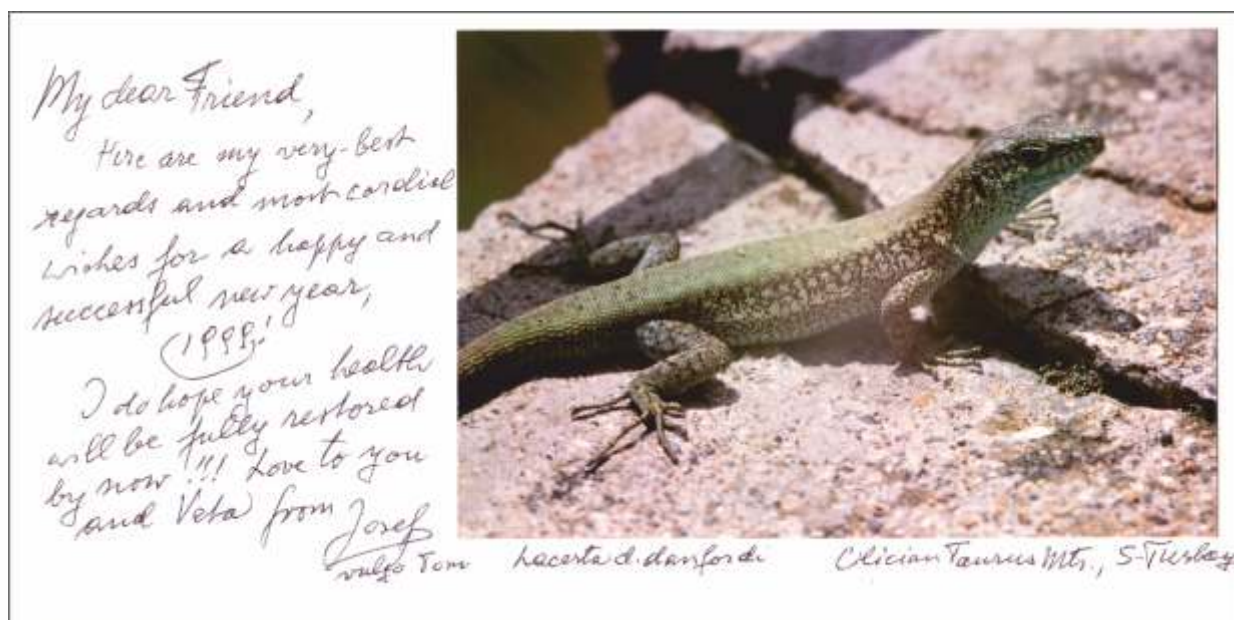 My dear Friend,
Here are my very-best
regards and most cordial
wishes for a happy and
successful new year,
1999!
I do hope your health
will be fully restored
by now!!! Love to you
and Veta from
Josef
vulgo Tom
Lacerta d. danfordi
Cilician Taurus Mts., S-Turkey